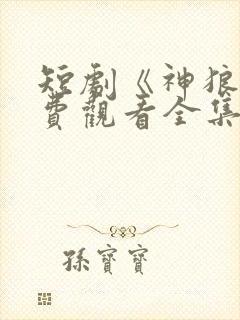 短劇《神狼
費觀看全集
孫寶寶